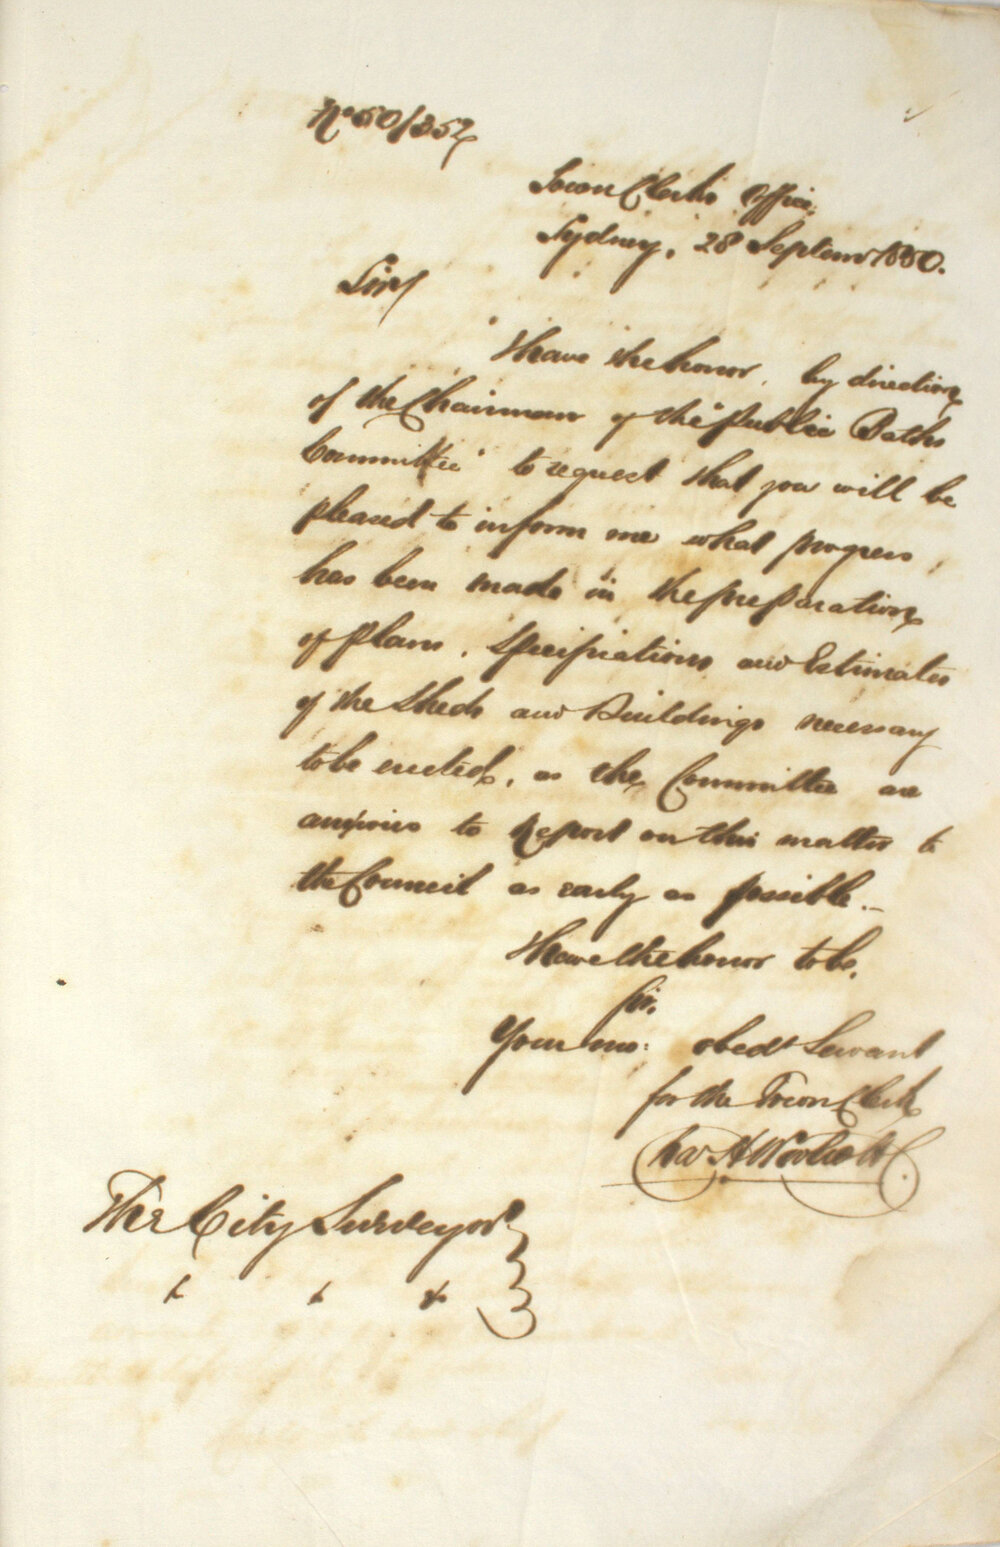 No 50/352
Town Clerks Office,
Sydney, 28 Septemr 1850.
Sir,
I have the honor, by direction
of the Chairman of the "Public Baths
Committee" to request that you will be
pleased to inform me what progress
has been made in the preparation
of plans, Specifications and Estimates
of the Sheds and Buildings necessary
to be erected, as the Committee are
anxious to Report on this matter to
the Council as early as possible.—
I have the honor to be,
Sir,
Your mo: obedt Servant
for the Town Clerk
Chas H Woolcott
The City Surveyor
&c &c &c